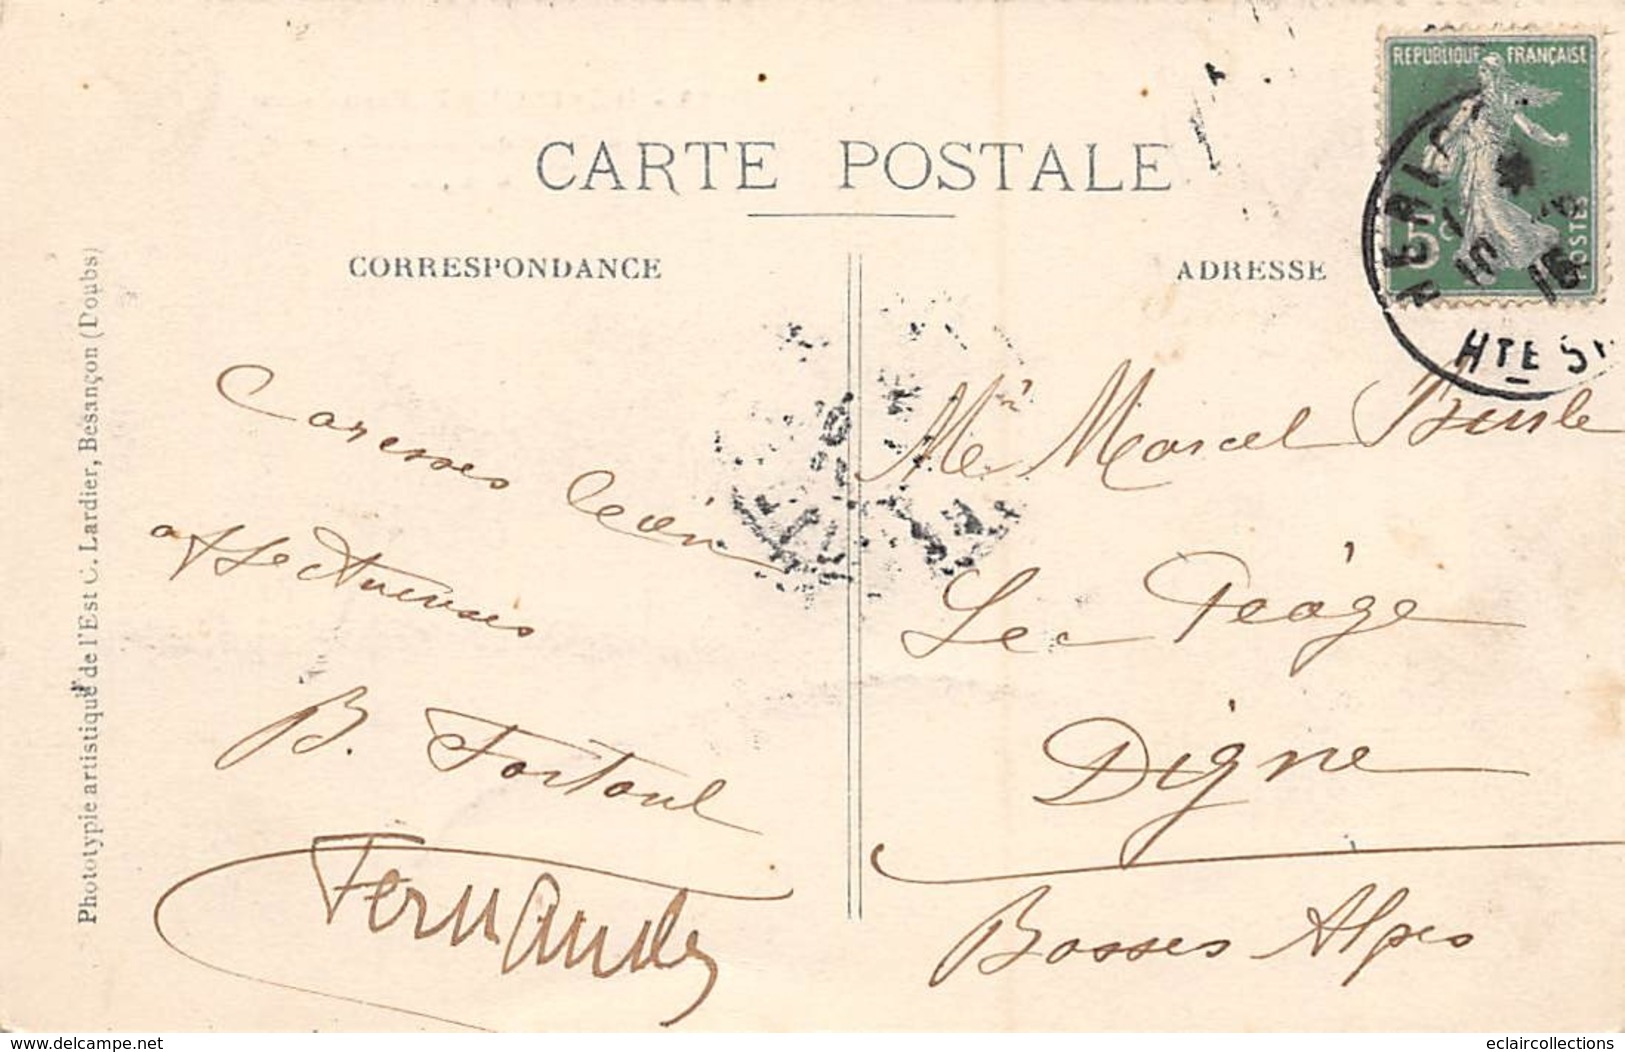 REPUBLIQUE FRANÇAISE
5c
POSTES
CARTE POSTALE
CORRESPONDANCE
ADRESSE
HTE
Caresses
affectueuses
B. Fortoul
Fernande
Mr Marcel
Le Péage
Digne
Basses Alpes
Phototypie artistique de l'Est C. Lardier, Besançon (Doubs)
www.delcampe.net
eclaircollections